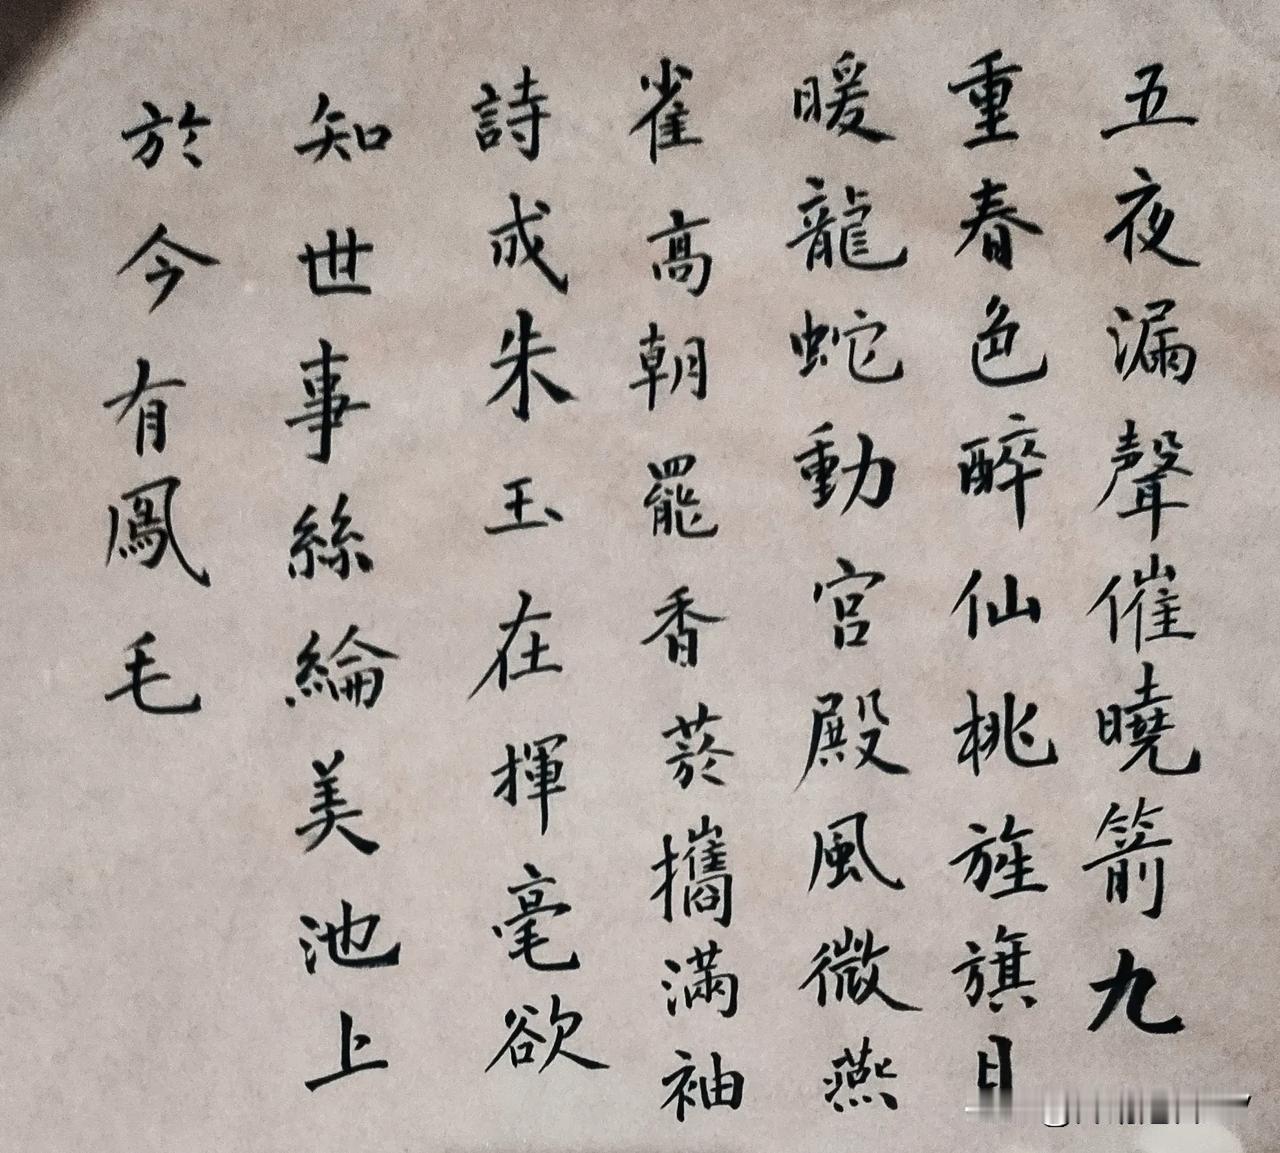 五夜漏聲催曉箭九
重春色醉仙桃旌旗日
暖龍蛇動宮殿風微燕
雀高朝罷香菸攜滿袖
詩成朱玉在揮毫欲
知世事絲綸美池上
於今有鳳毛